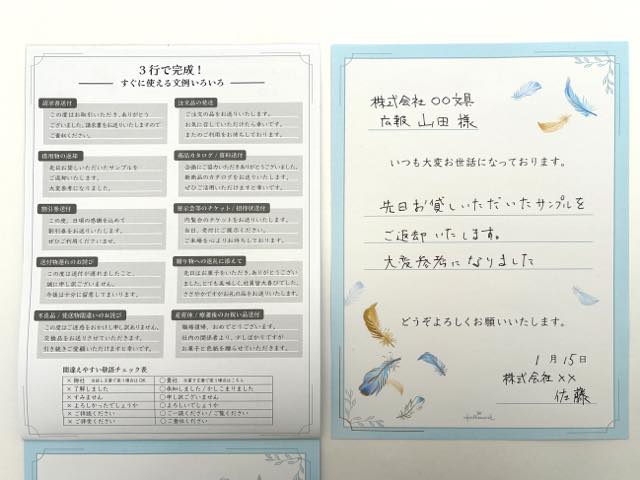 3行で完成！
すぐに使える文例いろいろ
請求書送付
この度はお取引いただき、ありがとう
ございました。請求書をお送りいたしますので
ご査収ください。
借用物の返却
先日お貸しいただいたサンプルを
ご返却いたします。
大変参考になりました。
割引券送付
この度、日頃の感謝を込めて
割引券をお送りいたします。
ぜひご利用くださいませ。
送付物遅れのお詫び
この度は送付が遅れましたこと、
誠に申し訳ございません。
今後は十分に留意してまいります。
不良品／発送物間違いのお詫び
この度はご迷惑をおかけし申し訳ありません。
交換品をお送りさせていただきます。
引き続きご愛顧いただけますと幸いです。
注文品の発送
ご注文の品をお送りいたします。
お気に召していただけたら幸いです。
またのご利用をお待ちしております。
商品カタログ / 資料送付
企画にご協力いただきありがとうございました。
新商品のカタログをお送りいたします。
ぜひご活用いただけますと幸いです。
展示会等のチケット / 招待状送付
内覧会のチケットをお送りいたします。
当日、受付にご提示ください。
ご来場を心よりお待ちしております。
贈り物への返礼に添えて
先日はお菓子をいただき、ありがとうござい
ました。とても美味しく、社員皆大喜びでした。
ささやかですがお礼の品をお送りいたします。
産育休 / 療養後のお祝い品送付
職場復帰、おめでとうございます。
社内の関係者より、少しばかりですが
お菓子と色紙を贈らせていただきます。
間違えやすい敬語チェック表
×御社 ※話し言葉で使う場合はOK ○貴社 ※書き言葉で使う場合はこちら
×了解しました ○承知しました／かしこまりました
×すみません ○申し訳ございません
×よろしかったでしょうか ○よろしいでしょうか
×ご拝読ください ○ご一読ください／ご覧ください
×ご拝受ください ○ご査収ください
株式会社 〇〇文具
広報 山田 様
いつも大変お世話になっております。
先日お貸しいただいたサンプルを
ご返却いたします。
大変参考になりました
どうぞよろしくお願いいたします。
1月15日
株式会社××
佐藤
Hallmark